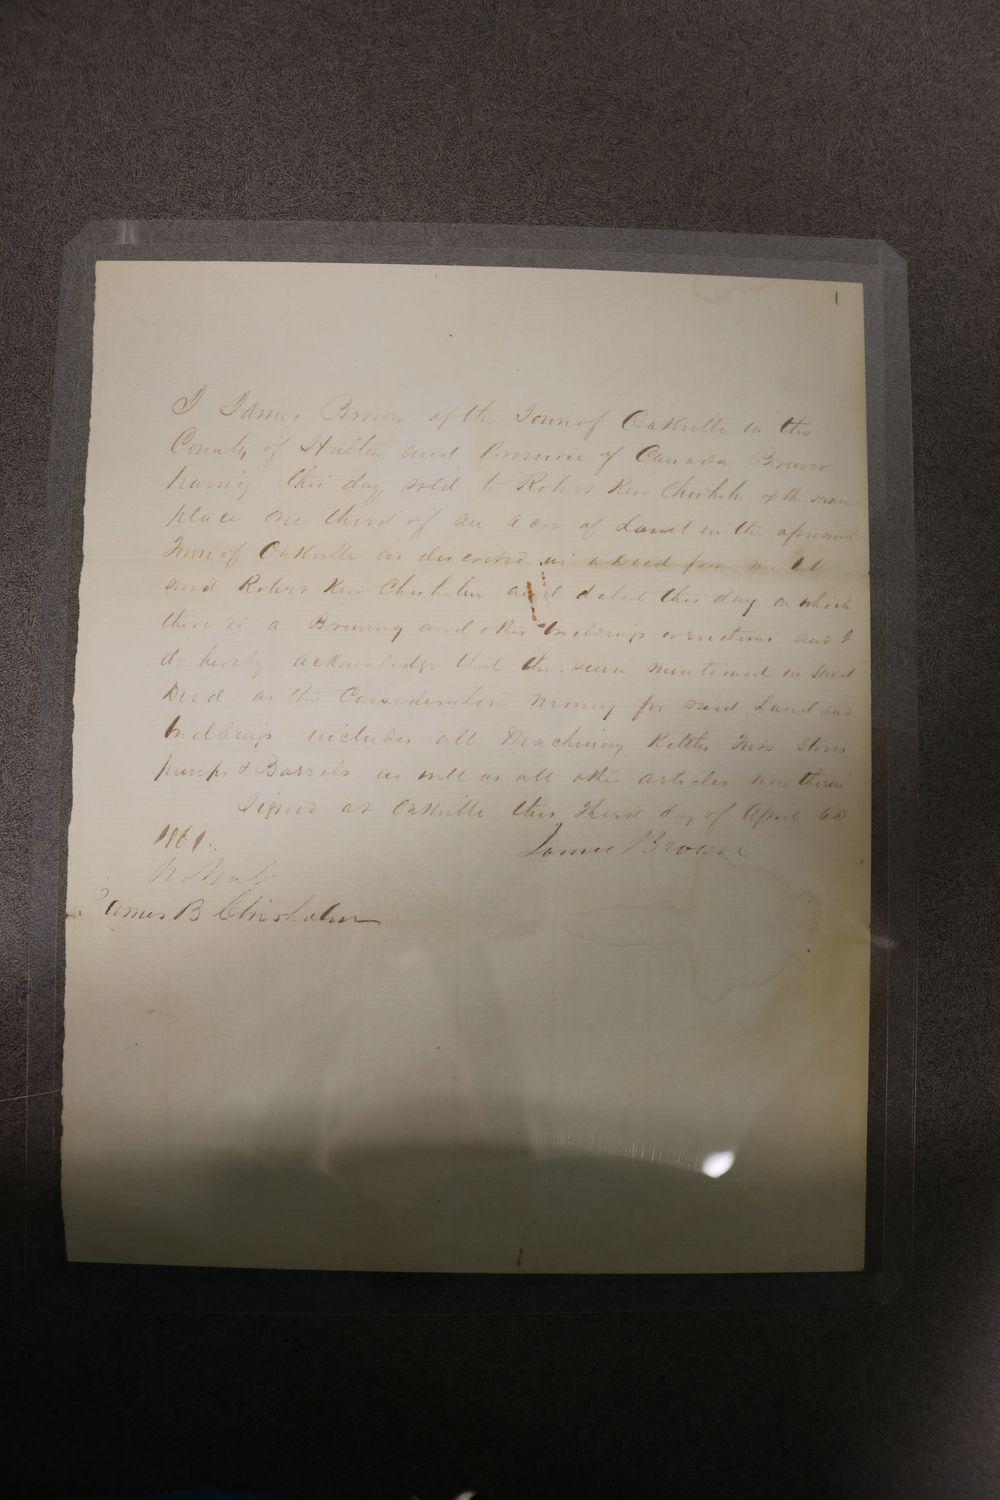 I James Brown of the Town of Oakville in the
County of Halton and Province of Canada Brewer
having this day sold to Robert Kerr Chisholm of the same
place one third of an acre of Land in the aforesaid
Town of Oakville as described in a Deed from me to the
said Robert Kerr Chisholm and dated this day on which
there is a Brewery and other buildings erections and I
do hereby acknowledge that the sum mentioned in said
Deed as the Consideration Money for said Land and
buildings includes all Machinery Kettles Tubs Stoves
pumps & Barrels as well as all other articles now therein
Signed at Oakville this Third day of April AD
1861.
James Brown
James B Chisholm